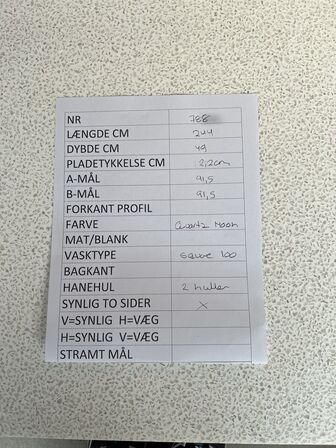 NR 788
LÆNGDE CM 244
DYBDE CM 49
PLADETYKKELSE CM 2,2cm
A-MÅL 91,5
B-MÅL 91,5
FORKANT PROFIL
FARVE Quartz Moon
MAT/BLANK
VASKTYPE square 100
BAGKANT
HANEHUL 2 huller
SYNLIG TO SIDER X
V=SYNLIG H=VÆG
H=SYNLIG V=VÆG
STRAMT MÅL